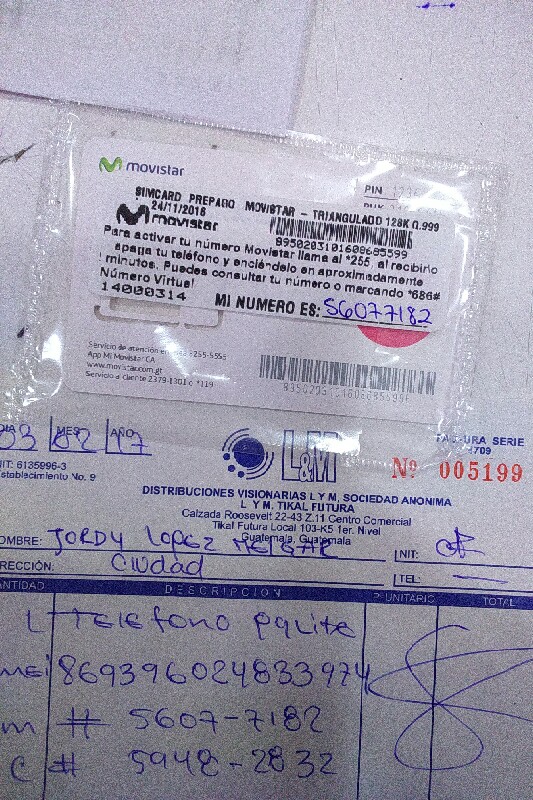 movistar
PIN
SIMCARD PREPAGO MOVISTAR - TRIANGULADO 128K 0.999
24/11/2016
movistar
8950203101608685599
Para activar tu número Movistar llama al *255, al recibirlo
apaga tu teléfono y enciéndelo en aproximadamente
minutos. Puedes consultar tu número o marcando *686#
Número Virtual
14000314
MI NUMERO ES: 56077182
App Mi Movistar CA
www.movistar.com.gt
Servicio a cliente 2379-1301 o *119
DIA MES AÑO
03 02 17
NIT: 6135996-3
Establecimiento No. 9
L&M
FACTURA SERIE
Nº 005199
DISTRIBUCIONES VISIONARIAS L Y M, SOCIEDAD ANONIMA
L Y M. TIKAL FUTURA
Calzada Roosevelt 22-43 Z.11 Centro Comercial
Tikal Futura Local 103-K5 1er. Nivel
Guatemala, Guatemala
NOMBRE: Jordy Lopez
NIT: CF
DIRECCIÓN: Ciudad
TEL:
CANTIDAD DESCRIPCION P. UNITARIO TOTAL
1 Telefono
869396024833974
m # 5607-7182
C # 5948-2832